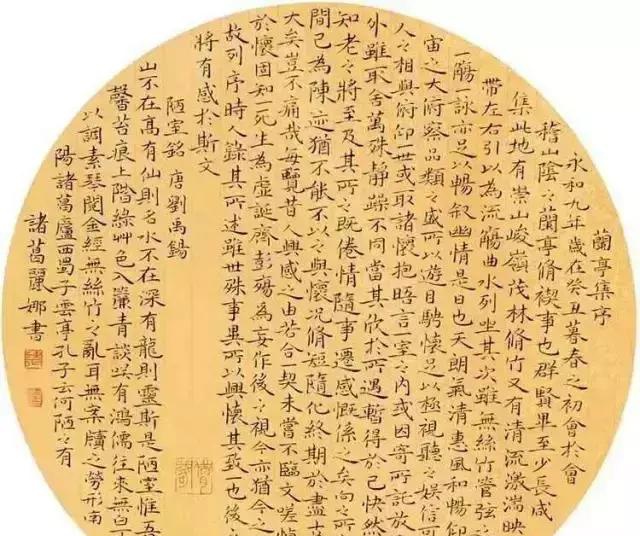 蘭亭集序
永和九年歲在癸丑暮春之初會於會
稽山陰之蘭亭脩禊事也群賢畢至少長咸
集此地有崇山峻嶺茂林脩竹又有清流激湍映
帶左右引以為流觴曲水列坐其次雖無絲竹管弦之
一觴一詠亦足以暢敘幽情是日也天朗氣清惠風和暢仰
宙之大俯察品類之盛所以遊目騁懷足以極視聽之娛信可
人之相與俯仰一世或取諸懷抱晤言室之內或因寄所託放
外雖取舍萬殊靜躁不同當其欣於所遇暫得於己快然
知老之將至及其所之既倦情隨事遷感慨係之矣向之所
間已為陳迹猶不能不以之興懷況脩短隨化終期於盡
大矣豈不痛哉每覽昔人興感之由若合契未嘗不臨文嗟
於懷固知一死生為虛誕齊彭殤為妄作後之視今亦猶今之
故列序時人錄其所述雖世殊事異所以興懷其致一也後
將有感於斯文
陋室銘 唐 劉禹錫
山不在高有仙則名水不在深有龍則靈斯是陋室惟吾
馨苔痕上階綠艸色入簾青談笑有鴻儒往來無白丁
以調素琴閱金經無絲竹之亂耳無案牘之勞形南
陽諸葛廬西蜀子雲亭孔子云何陋之有
諸葛麗娜書